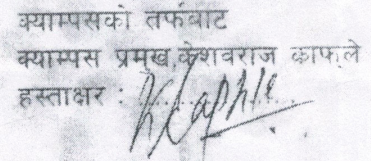 क्याम्पसको तर्फबाट
क्याम्पस प्रमुख केशवराज काफ्ले
हस्ताक्षर : ....................